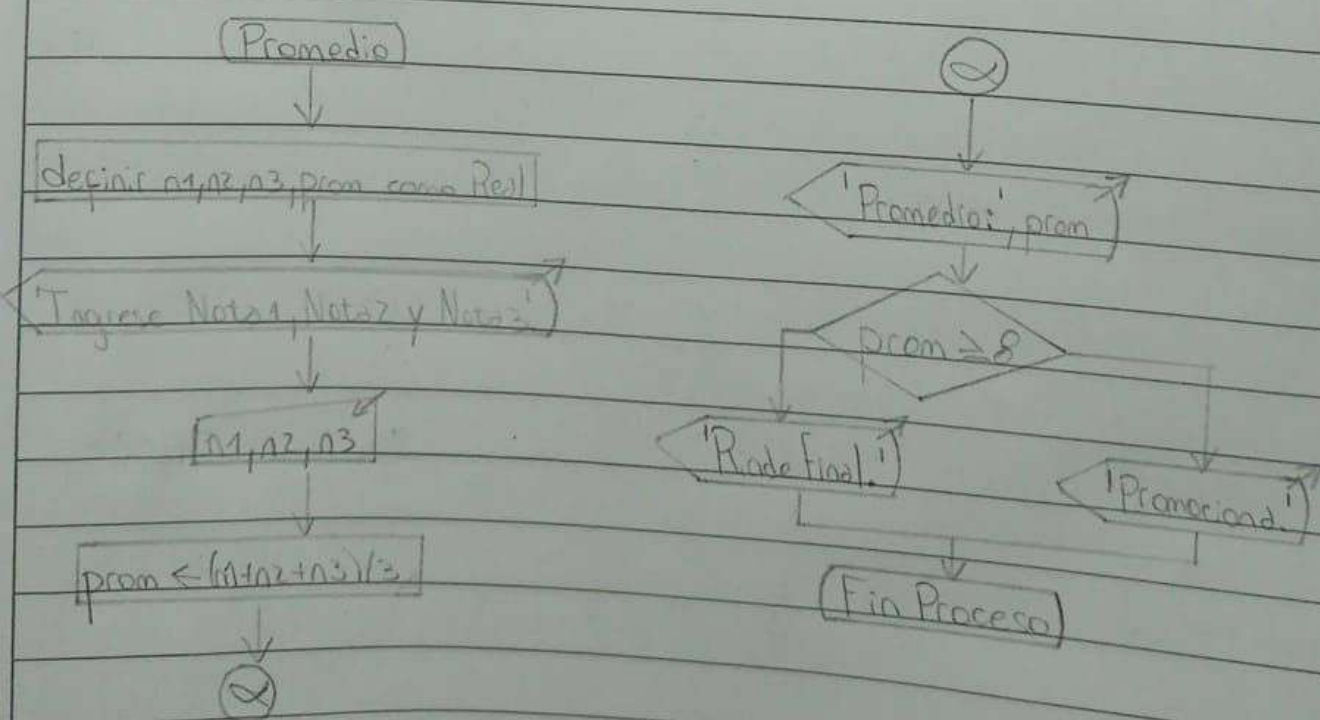 Promedio
definir n1,n2,n3,prom como Real
'Ingrese Nota1, Nota2 y Nota3'
n1,n2,n3
prom ← (n1+n2+n3)/3
α
α
'Promedio:', prom
prom ≥ 8
'Rinde Final.'
'Promociona.'
Fin Proceso